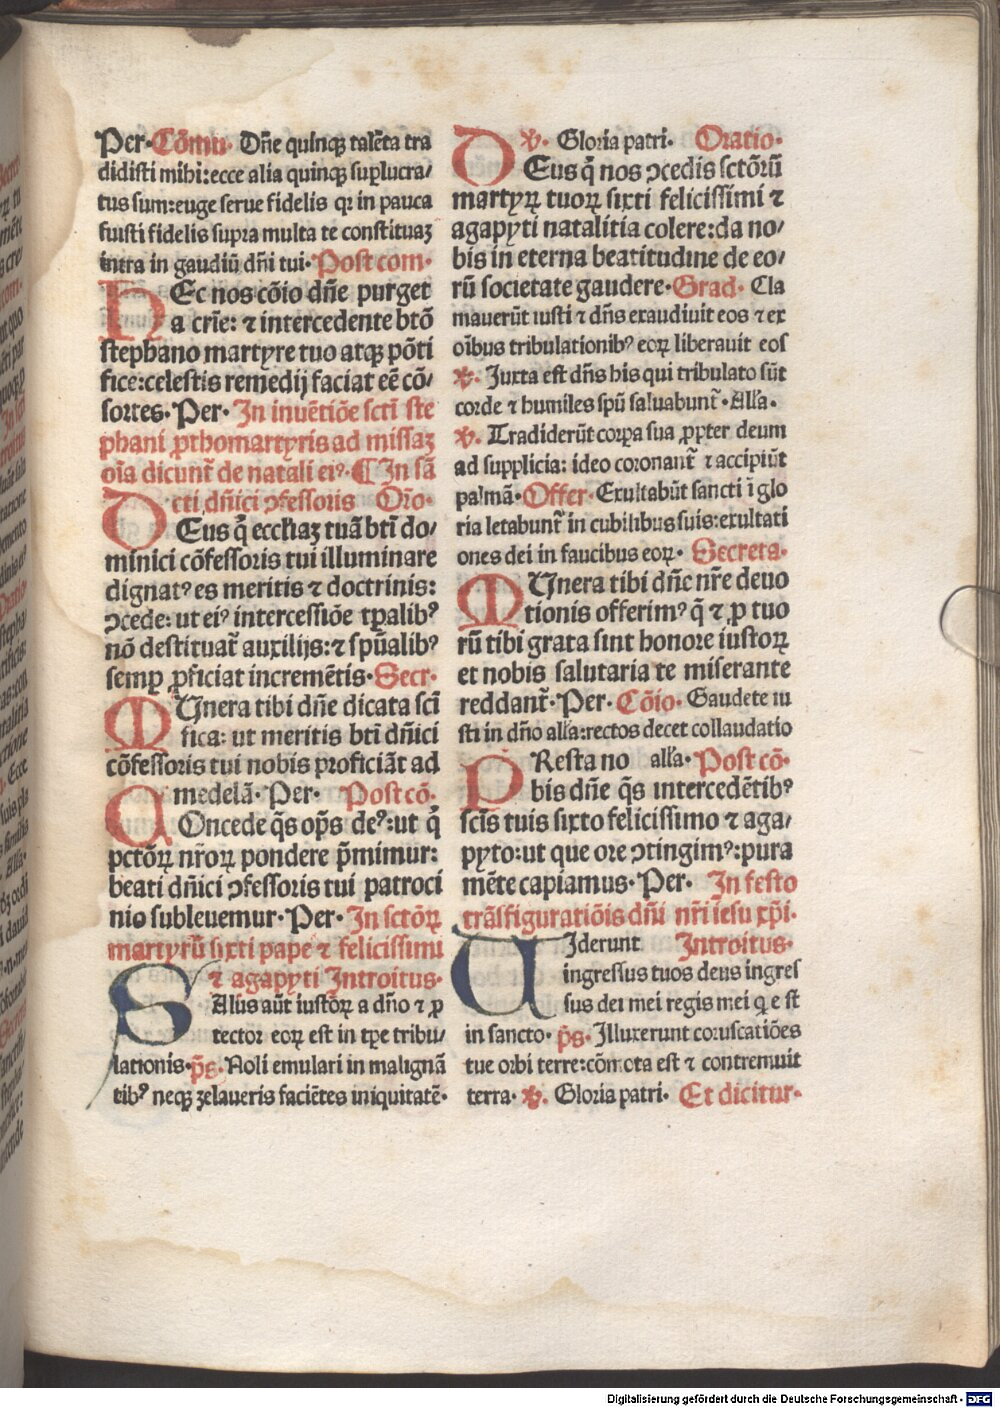 Per. Cōmu. Dn̄e quinqꝫ talēta tra
didisti mihi: ecce alia quinqꝫ suꝑlucra⸗
tus sum: euge serue fidelis qꝛ in pauca
fuisti fidelis supra multa te constituaꝫ
intra in gaudiū dn̄i tui. Post com.
HEc nos cōio dn̄e purget
a crīe: ⁊ intercedente btō
stephano martyre tuo atqꝫ pōti
fice: celestis remedij faciat eē cō⸗
sortes. Per. In inuētiōe scti ste
phani ꝓthomartyris ad missaꝫ
oīa dicunt̄ de natali eiꝰ. ¶ In sā
cti dn̄ici ↄfessoris Orō.
DEus q̄ ecclīaꝫ tuā btī do⸗
minici cōfessoris tui illuminare
dignatꝰ es meritis ⁊ doctrinis:
ↄcede: ut eiꝰ intercessiōe tꝑalibꝰ
nō destituat̄ auxilijs: ⁊ spūalibꝰ
semꝑ ꝓficiat incremētis. Secr.
MUnera tibi dn̄e dicata scī
fica: ut meritis btī dn̄ici
cōfessoris tui nobis proficiāt ad
medelā. Per. Post cō.
COncede q̄s op̄s deꝰ: ut q̄
pctōꝝ nr̄oꝝ pondere p̄mimur:
beati dn̄ici ↄfessoris tui patroci
nio subleuemur. Per. In sctōꝝ
martyrū sixti pape ⁊ felicissimi
⁊ agapyti Introitus.
SAlus aūt iustōꝝ a dn̄o ⁊ ꝓ
tector eoꝝ est in tꝑe tribu⸗
lationis. p̄s. Noli emulari in malignā
tibꝰ neqꝫ zelaueris faciētes iniquitatē.
℣. Gloria patri. Oratio.
DEus q̄ nos ↄcedis sctōrū
martyꝝ tuoꝝ sixti felicissimi ⁊
agapyti natalitia colere: da no⸗
bis in eterna beatitudine de eo⸗
rū societate gaudere. Grad. Cla
mauerūt iusti ⁊ dn̄s exaudiuit eos ⁊ ex
oībus tribulationibꝰ eoꝝ liberauit eos
℣. Juxta est dn̄s his qui tribulato sūt
corde ⁊ humiles spū saluabunt̄. All'a.
℣. Tradiderūt corꝑa sua ꝓpter deum
ad supplicia: ideo coronant̄ ⁊ accipiūt
palmā. Offer. Exultabūt sancti ī glo
ria letabunt̄ in cubilibus suis: exultati
ones dei in faucibus eoꝝ. Secreta.
MUnera tibi dn̄e nr̄e deuo
tionis offerimꝰ q̄ ⁊ ꝓ tuo
rū tibi grata sint honore iustoꝝ
et nobis salutaria te miserante
reddant̄. Per. Cōio. Gaudete iu
sti in dn̄o all'a: rectos decet collaudatio
PResta no all'a. Post cō.
bis dn̄e q̄s intercedētibꝰ
scīs tuis sixto felicissimo ⁊ aga⸗
pyto: ut que ore ↄtingimꝰ: pura
mēte capiamus. Per. In festo
trāsfiguratiōis dn̄i nr̄i iesu xp̄i.
UIderunt Introitus.
ingressus tuos deus ingres
sus dei mei regis mei q̇ e st
in sancto. p̄s. Illuxerunt coruscatiōes
tue orbi terre: cōmota est ⁊ contremuit
terra. ℣. Gloria patri. Et dicitur.
Digitalisierung gefördert durch die Deutsche Forschungsgemeinschaft - DFG